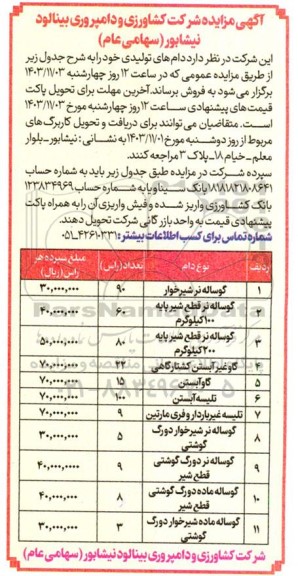 آگهی مزایده شرکت کشاورزی و دامپروری بینالود
نیشابور (سهامی عام)
این شرکت در نظر دارد دام های تولیدی خود را به شرح جدول زیر
از طریق مزایده عمومی که در ساعت ۱۲ روز چهارشنبه ۱۴۰۳/۱۱/۰۳
برگزار می شود به فروش برساند. آخرین مهلت برای تحویل پاکت
قیمت های پیشنهادی ساعت ۱۲ روز چهارشنبه مورخ ۱۴۰۳/۱۱/۰۳
است. متقاضیان می توانند برای دریافت و تحویل کاربرگ های
مربوط از روز دوشنبه مورخ ۱۴۰۳/۱۱/۰۱ به نشانی: نیشابور-بلوار
معلم-خیام ۱۸-پلاک ۳ مراجعه کنند.
سپرده شرکت در مزایده طبق جدول زیر باید به شماره حساب
بانک سینا و یا به شماره حساب ۱۲۳۸۳۴۹۶۹
بانک کشاورزی واریز شده و فیش واریزی آن را به همراه پاکت
پیشنهادی قیمت به واحد بازرگانی شرکت تحویل دهند.
شماره تماس برای کسب اطلاعات بیشتر: ۴۲۶۱۰۳۳۱-۰۵۱
ردیف نوع دام تعداد (راس) مبلغ سپرده هر راس (ریال)
۱ گوساله نر شیرخوار ۹۰ ۳۰,۰۰۰,۰۰۰
۲ گوساله نر قطع شیر پایه ۱۰۰ کیلوگرم ۶۰ ۴۰,۰۰۰,۰۰۰
۳ گوساله نر قطع شیر پایه ۲۰۰ کیلوگرم ۸۰ ۵۰,۰۰۰,۰۰۰
۴ گاو غیر آبستن کشتارگاهی ۲۲ ۷۰,۰۰۰,۰۰۰
۵ گاو آبستن ۱۵ ۷۰,۰۰۰,۰۰۰
۶ تلیسه آبستن ۱۰ ۷۰,۰۰۰,۰۰۰
۷ تلیسه غیر باردار و فری مارتین ۹ ۷۰,۰۰۰,۰۰۰
۸ گوساله نر شیرخوار دورگ گوشتی ۵ ۳۰,۰۰۰,۰۰۰
۹ گوساله نر دورگ گوشتی قطع شیر ۹ ۴۰,۰۰۰,۰۰۰
۱۰ گوساله ماده دورگ گوشتی قطع شیر ۸ ۴۰,۰۰۰,۰۰۰
۱۱ گوساله ماده شیرخوار دورگ گوشتی ۳ ۳۰,۰۰۰,۰۰۰
شرکت کشاورزی و دامپروری بینالود نیشابور (سهامی عام)